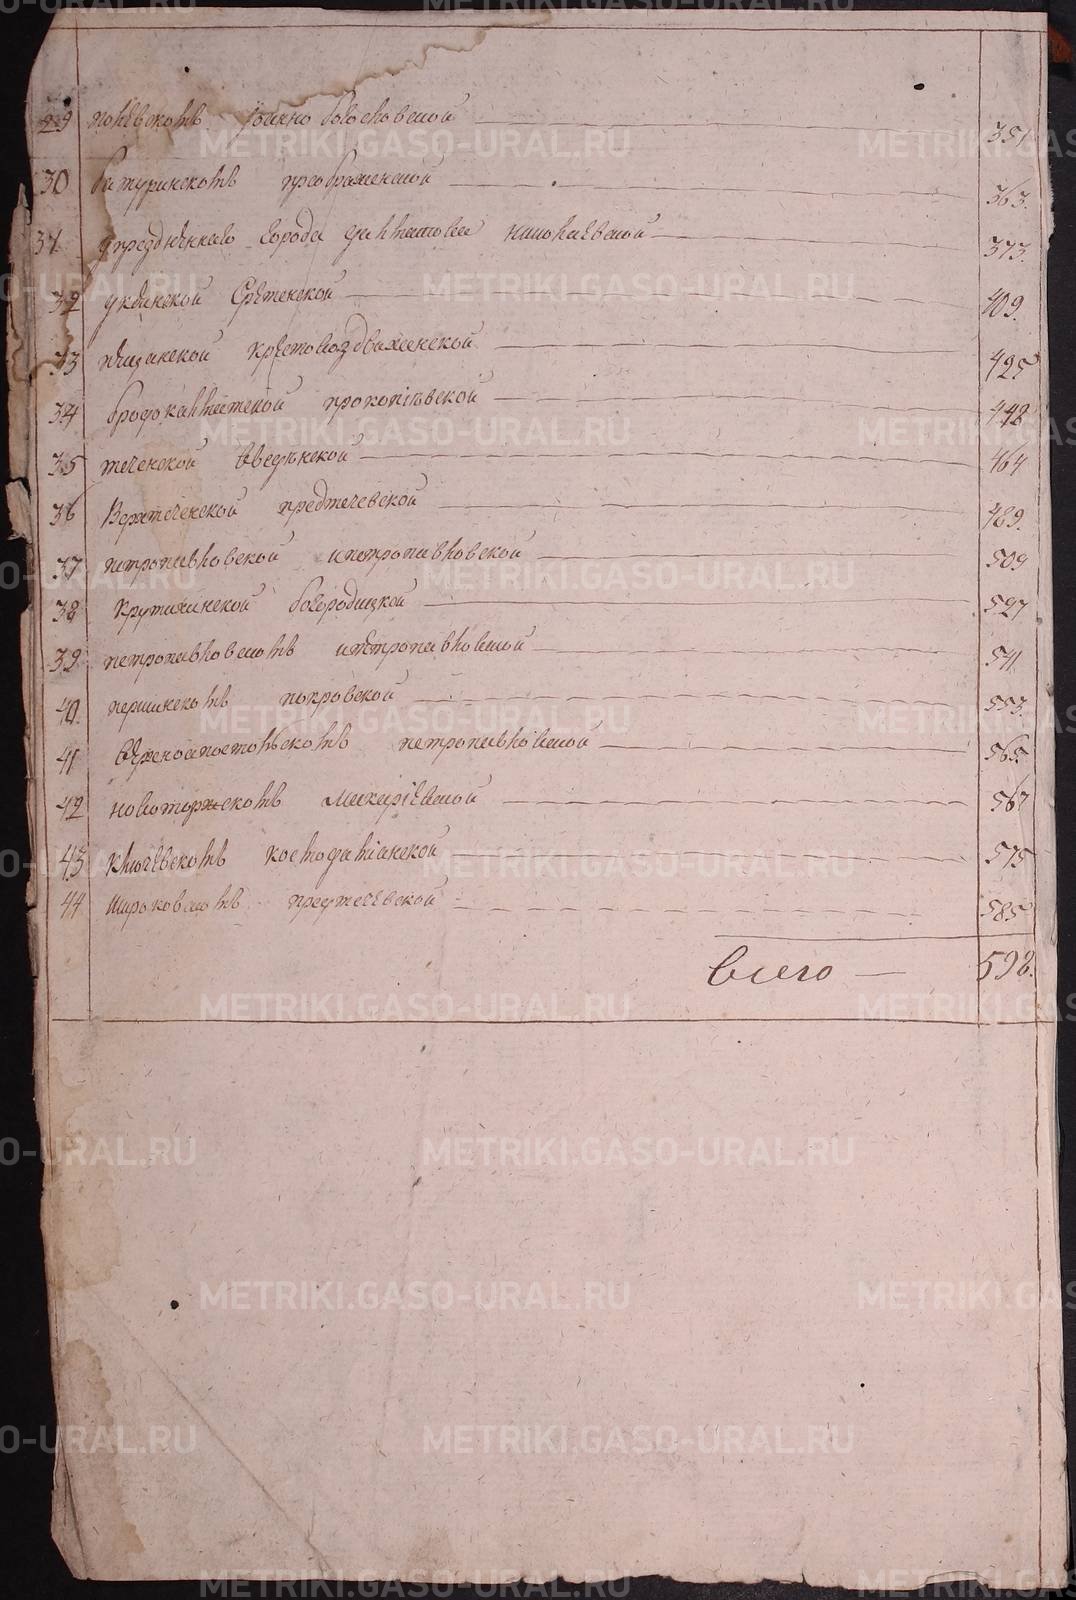 29 полевскомъ Иоанно богословской 351
30 батуринскомъ преображенской 363.
31 упраздненнаго города далматова николаевской 373.
32 уксянской Срѣтенской 409.
33 пѣсчанской крестовоздвиженской 425
34 бродокалматской прокопіевской 448
35 теченской введенской 464
36 Верхтеченской предтечевской 489.
37 петропавловской ипетропавловской 509
38 крутихинской богородицкой 527
39 петропавловскомъ петропавловской 541
40. першинскомъ покровской 553.
41 петропавловской 565.
42 новоторжскомъ 567
43 ключевскомъ 575
44 широковскомъ предтечевской 585
всего 598.
METRIKI.GASO-URAL.RU